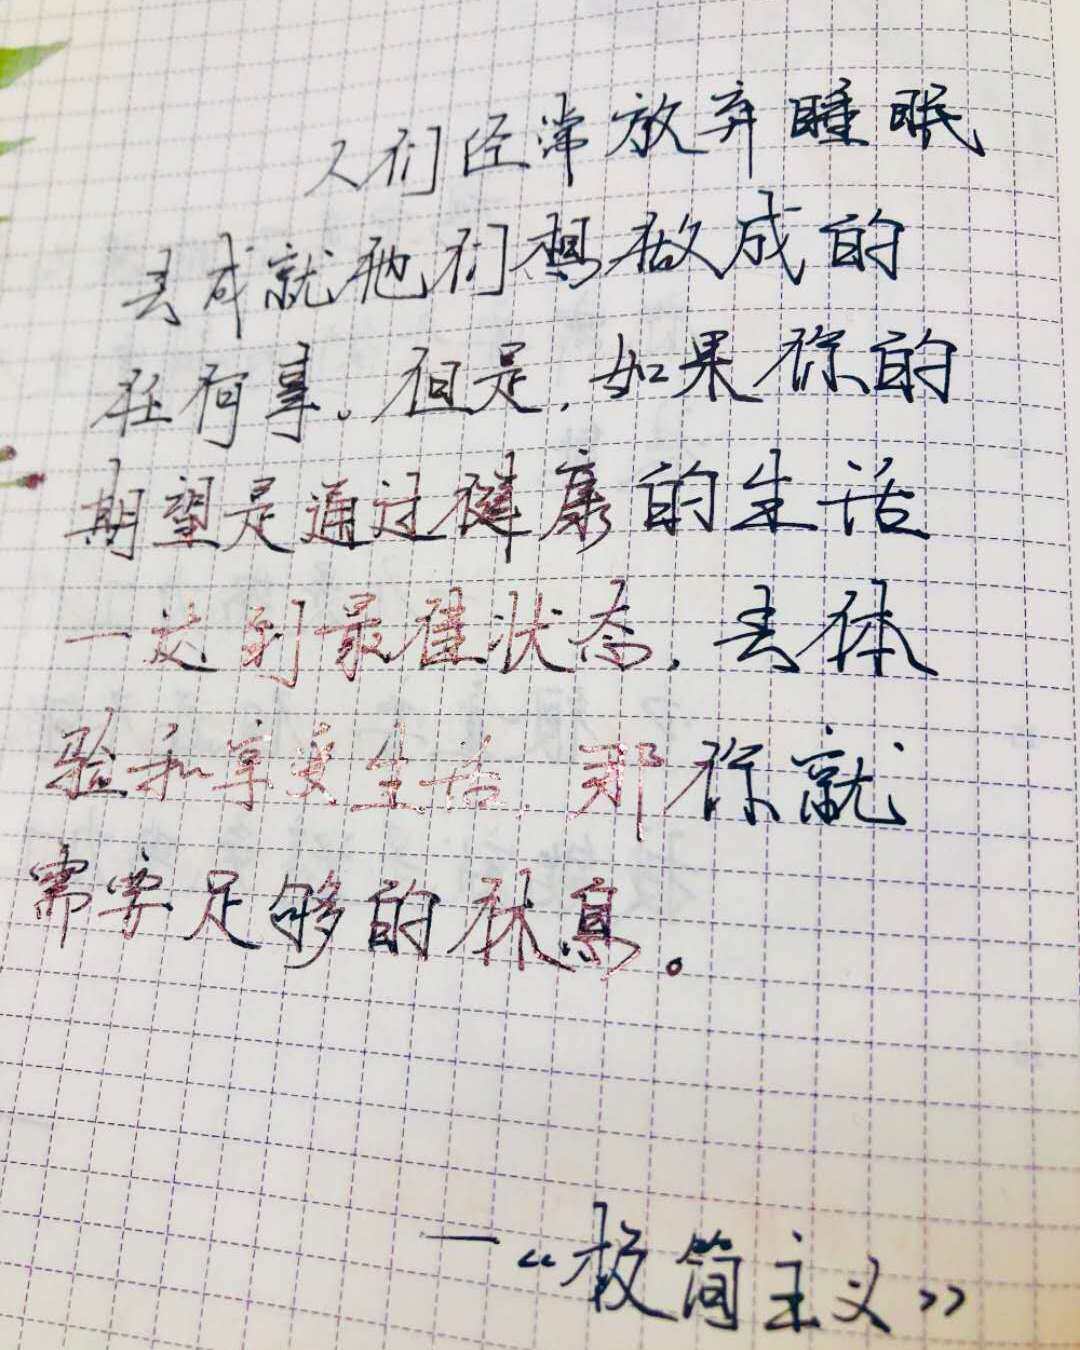 人们经常放弃睡眠
去成就他们想做成的
任何事。但是，如果你的
期望是通过健康的生活
一达到最佳状态，去体
验和享受生活，那你就
需要足够的休息。
—《极简主义》